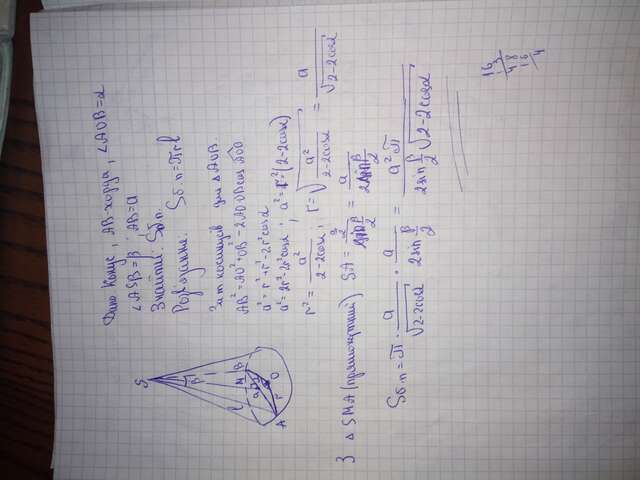 Дано конус, AB-хорда, ∠AOB=α
∠ASB=β, AB=a
Знайти: Sб.п.
Розв'язання: Sб п=πrl
З т. косинусів для △AOB.
AB²=AO²+OB²-2AO·OB·cos AOB
a²=r²+r²-2r²cosα
a²=2r²-2r²cosα; a²=r²(2-2cosα)
r²=a²/(2-2cosα); r=√(a²/(2-2cosα))=a/√(2-2cosα)
З △SMA(прямокутний) SA=(a/2)/(sin β/2)=a/(2sin β/2)
Sб п=π·a/√(2-2cosα)·a/(2sin β/2)=a²π/(2sin β/2 √(2-2cosα))
S
β
l
M
B
a
α
r
O
A
16
3
48
16
4